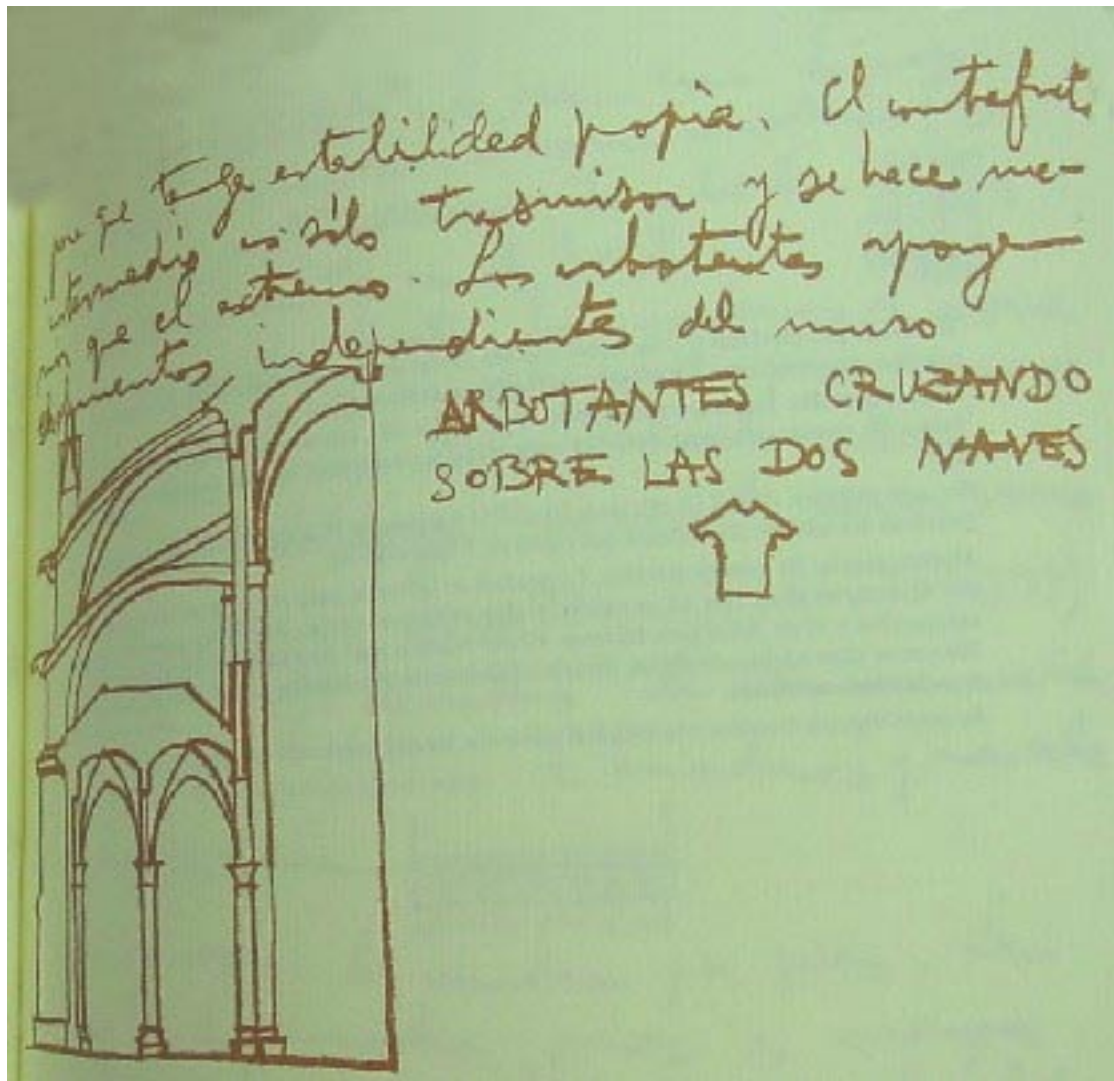 para que tenga estabilidad propia. El contrafuerte
intermedio es sólo trasmisor y se hace me-
nor que el extremo. Los arbotantes apoyan en
elementos independientes del muro
ARBOTANTES CRUZANDO
SOBRE LAS DOS NAVES